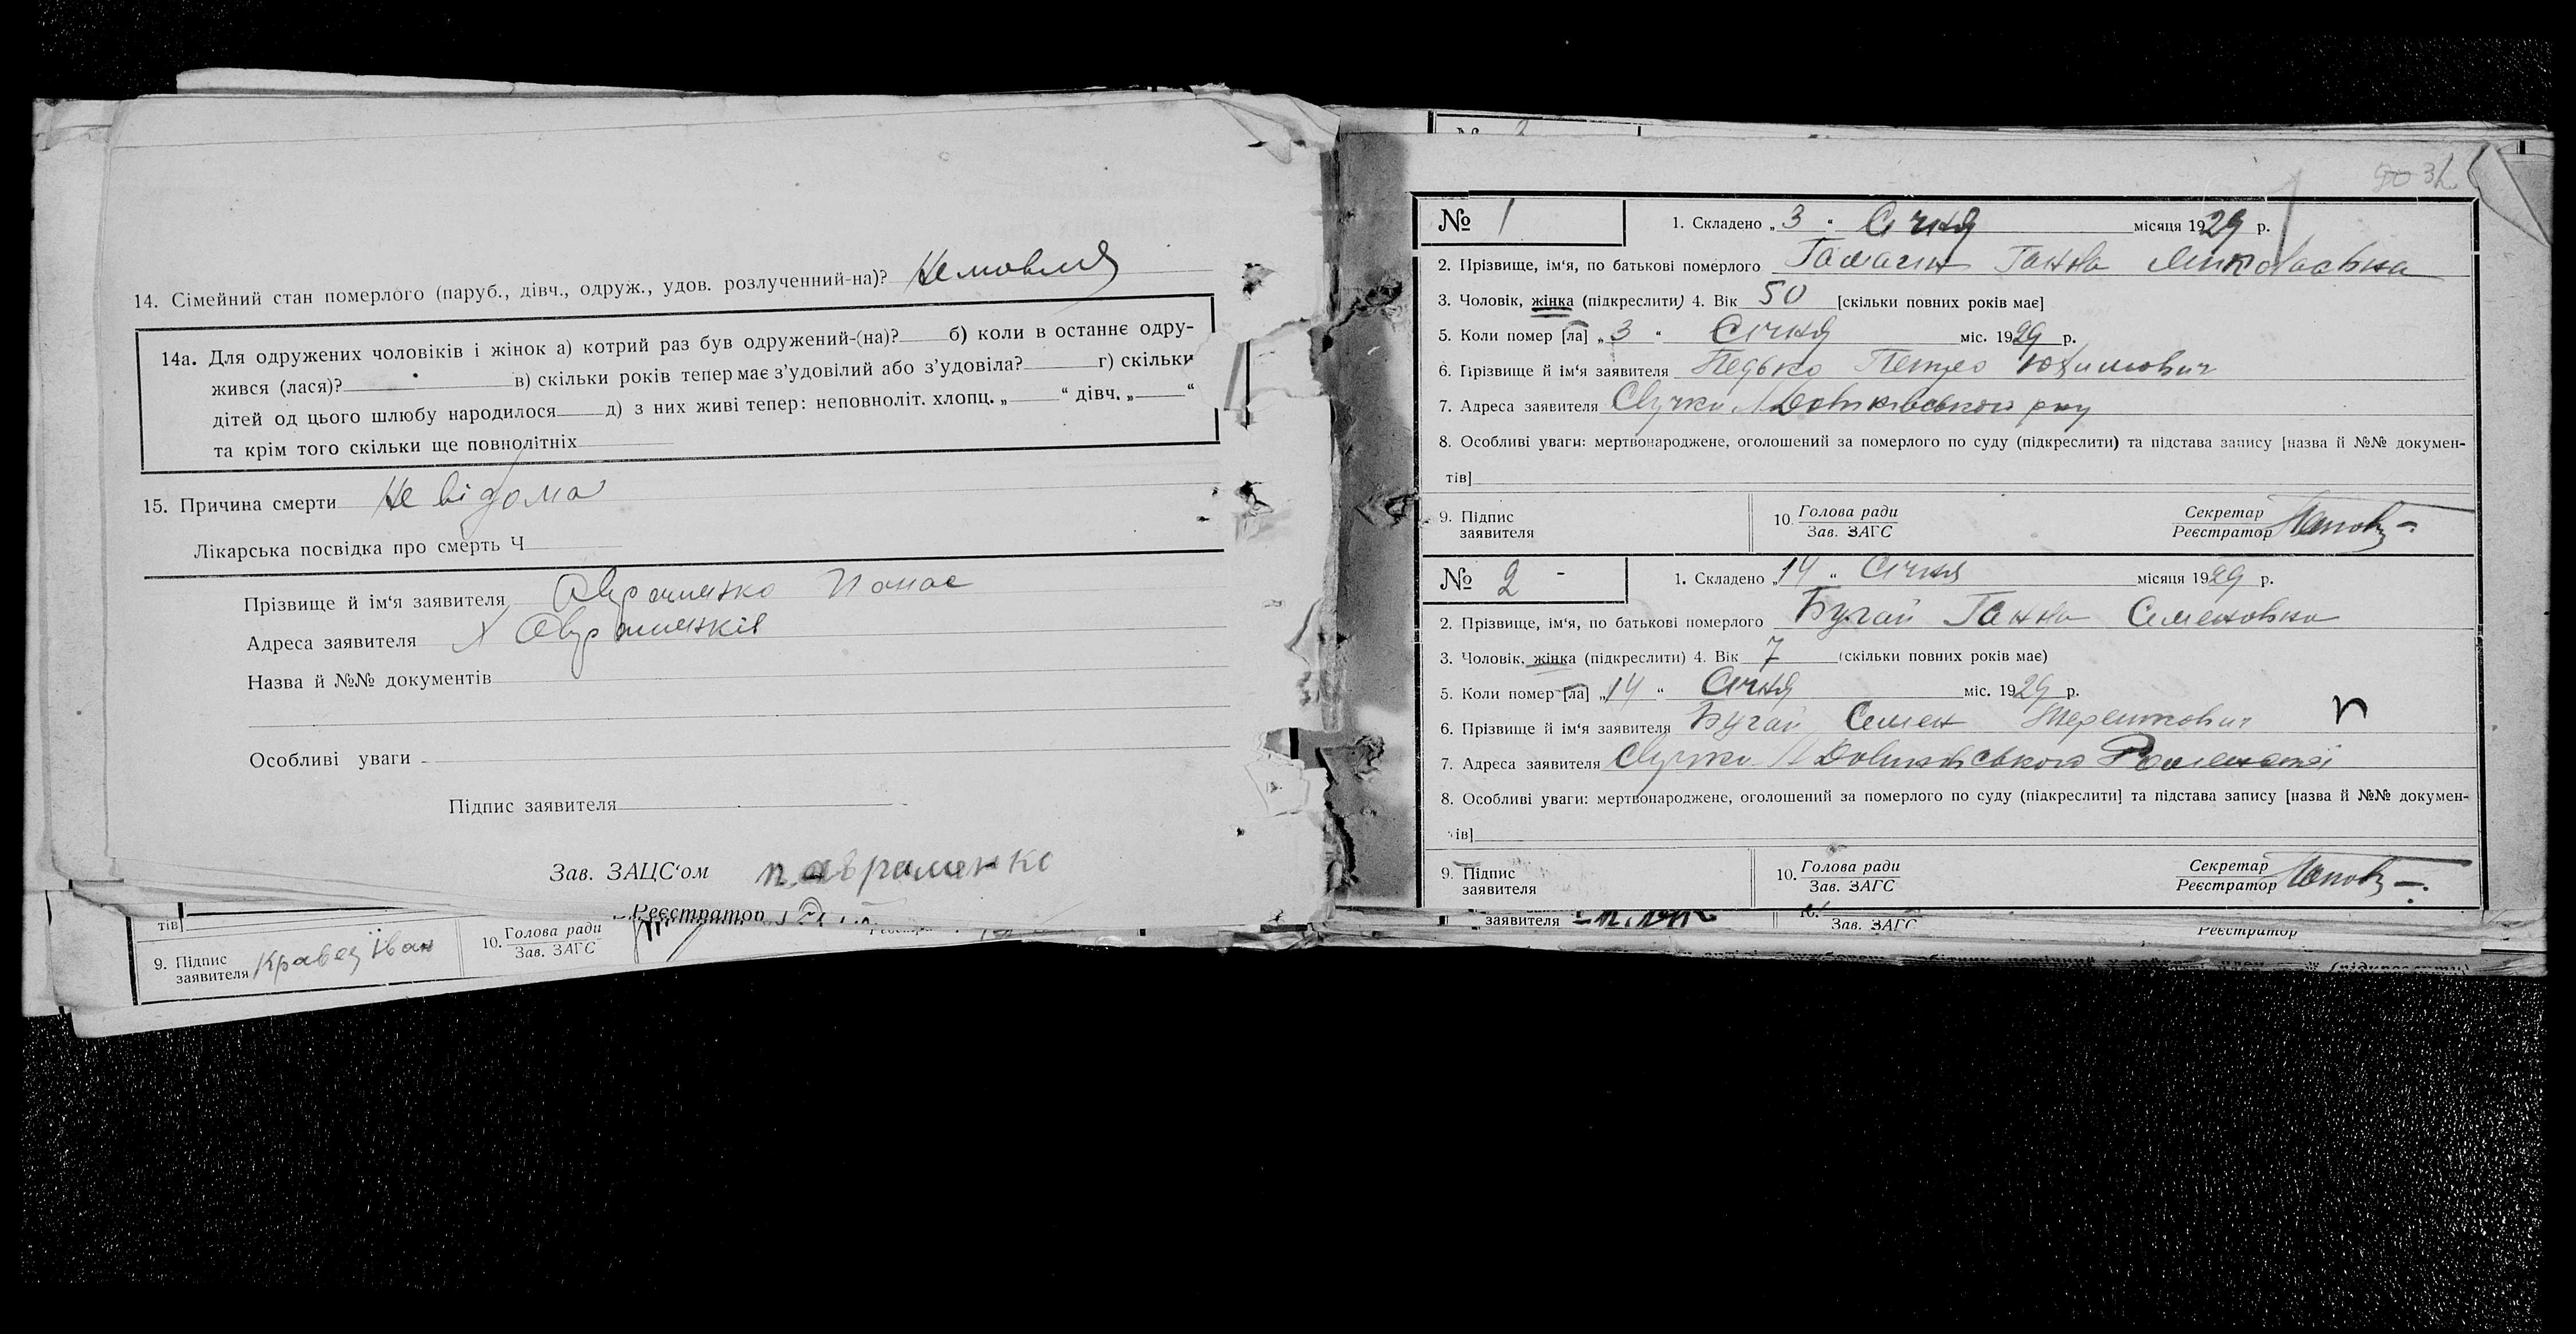 14. Сімейний стан померлого (паруб., дівч., одруж., удов. розлученний-на)? Немовля
14а. Для одружених чоловіків і жінок а) котрий раз був одружений-(на)? б) коли в останнє одру-
жився (лася)? в) скільки років тепер має з'удовілий або з'удовіла? г) скільки
дітей од цього шлюбу народилося д) з них живі тепер: неповноліт. хлопц. „ “ дівч. „ “
та крім того скільки ще повнолітніх
15. Причина смерти Не відома
Лікарська посвідка про смерть Ч
Прізвище й ім'я заявителя Авраменко Панас
Адреса заявителя Х
Назва й №№ документів
Особливі уваги
Підпис заявителя
Зав. ЗАЦС'ом П. Авраменко
Реєстратор
тів]
9. Підпис заявителя Кравец Іван
10. Голова ради
Зав. ЗАГС
№ 1
1. Складено „3“ Січня місяця 1929 р.
2. Прізвище, ім'я, по батькові померлого Ганна Миколаівна
3. Чоловік, жінка (підкреслити) 4. Вік 50 [скільки повних років має]
5. Коли помер [ла] „3“ Січня міс. 1929 р.
6. Прізвище й ім'я заявителя Педько Петро Юхимович
7. Адреса заявителя
8. Особливі уваги: мертвонароджене, оголошений за померлого по суду (підкреслити) та підстава запису [назва й №№ докумен-
тів]
9. Підпис заявителя
10. Голова ради
Зав. ЗАГС
Секретар
Реєстратор
№ 2
1. Складено „14“ Січня місяця 1929 р.
2. Прізвище, ім'я, по батькові померлого Бугай Ганна Семеновна
3. Чоловік, жінка (підкреслити) 4. Вік 7 (скільки повних років має)
5. Коли помер [ла] „14“ Січня міс. 1929 р.
6. Прізвище й ім'я заявителя Бугай Семен Терешкович
7. Адреса заявителя
8. Особливі уваги: мертвонароджене, оголошений за померлого по суду (підкреслити] та підстава запису [назва й №№ докумен-
тів]
9. Підпис заявителя
10. Голова ради
Зав. ЗАГС
Секретар
Реєстратор
заявителя
Зав. ЗАГС
Реєстратор